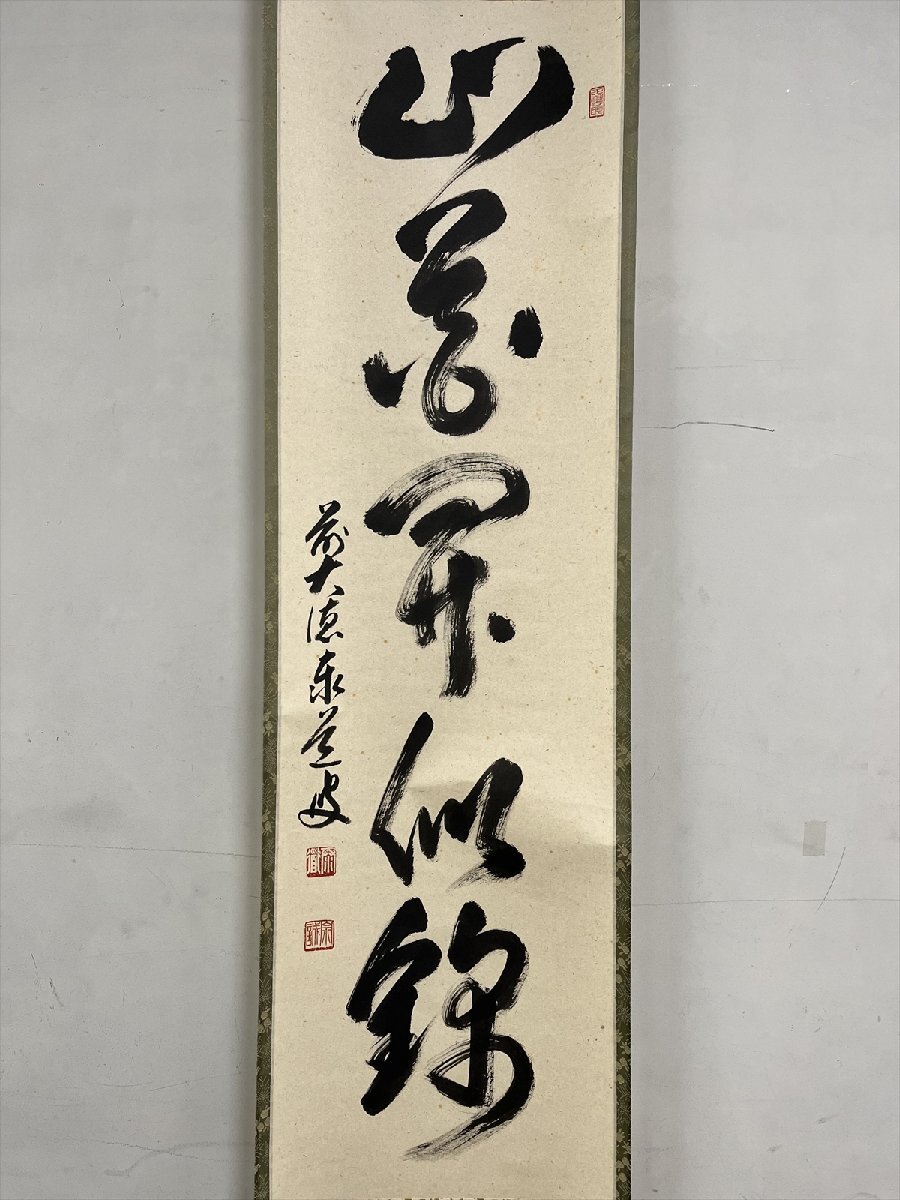 山花開似錦
前大徳泰道叟